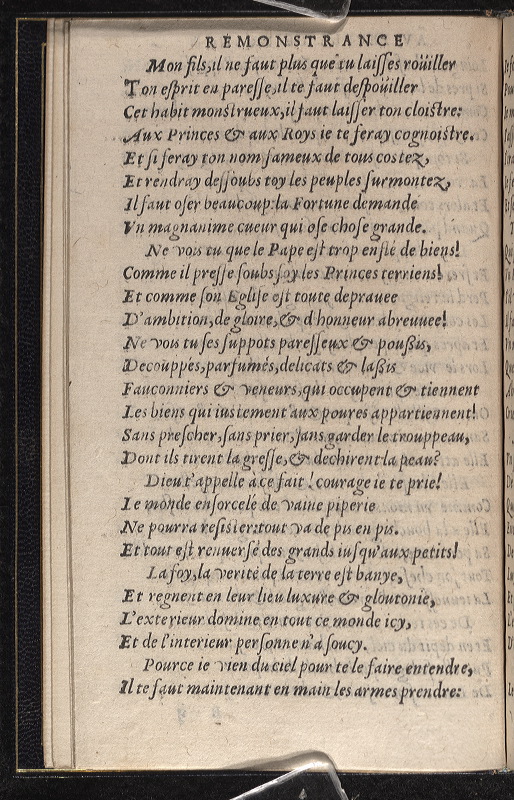 REMONSTRANCE
Mon fils, il ne faut plus que tu laisses roüiller
Ton esprit en paresse, il te faut despoüiller
Cet habit monstrueux, il faut laisser ton cloistre:
Aux Princes & aux Roys ie te feray cognoistre.
Et si feray ton nom fameux de tous costez,
Et rendray dessoubs toy les peuples surmontez,
Il faut oser beaucoup: la Fortune demande
Vn magnanime cueur qui ose chose grande.
Ne vois tu que le Pape est trop enflé de biens!
Comme il presse soubs soy les Princes terriens!
Et comme son Eglise est toute deprauee
D'ambition, de gloire, & d'honneur abreuuee!
Ne vois tu ses suppots paresseux & poußis,
Decouppés, parfumés, delicats & laßis
Fauconniers & veneurs, qui occupent & tiennent
Les biens qui iustement aux poures appartiennent!
Sans prescher, sans prier, sans garder le trouppeau,
Dont ils tirent la gresse, & dechirent la peau?
Dieu t'appelle à ce fait! courage ie te prie!
Le monde ensorcelé de vaine piperie
Ne pourra resister: tout va de pis en pis,
Et tout est renuersé des grands iusqu'aux petits!
La foy, la verité de la terre est banye,
Et regnent en leur lieu luxure & gloutonie,
L'exterieur domine en tout ce monde icy,
Et de l'interieur personne n'a soucy.
Pource ie vien du ciel pour te le faire entendre,
Il te faut maintenant en main les armes prendre: